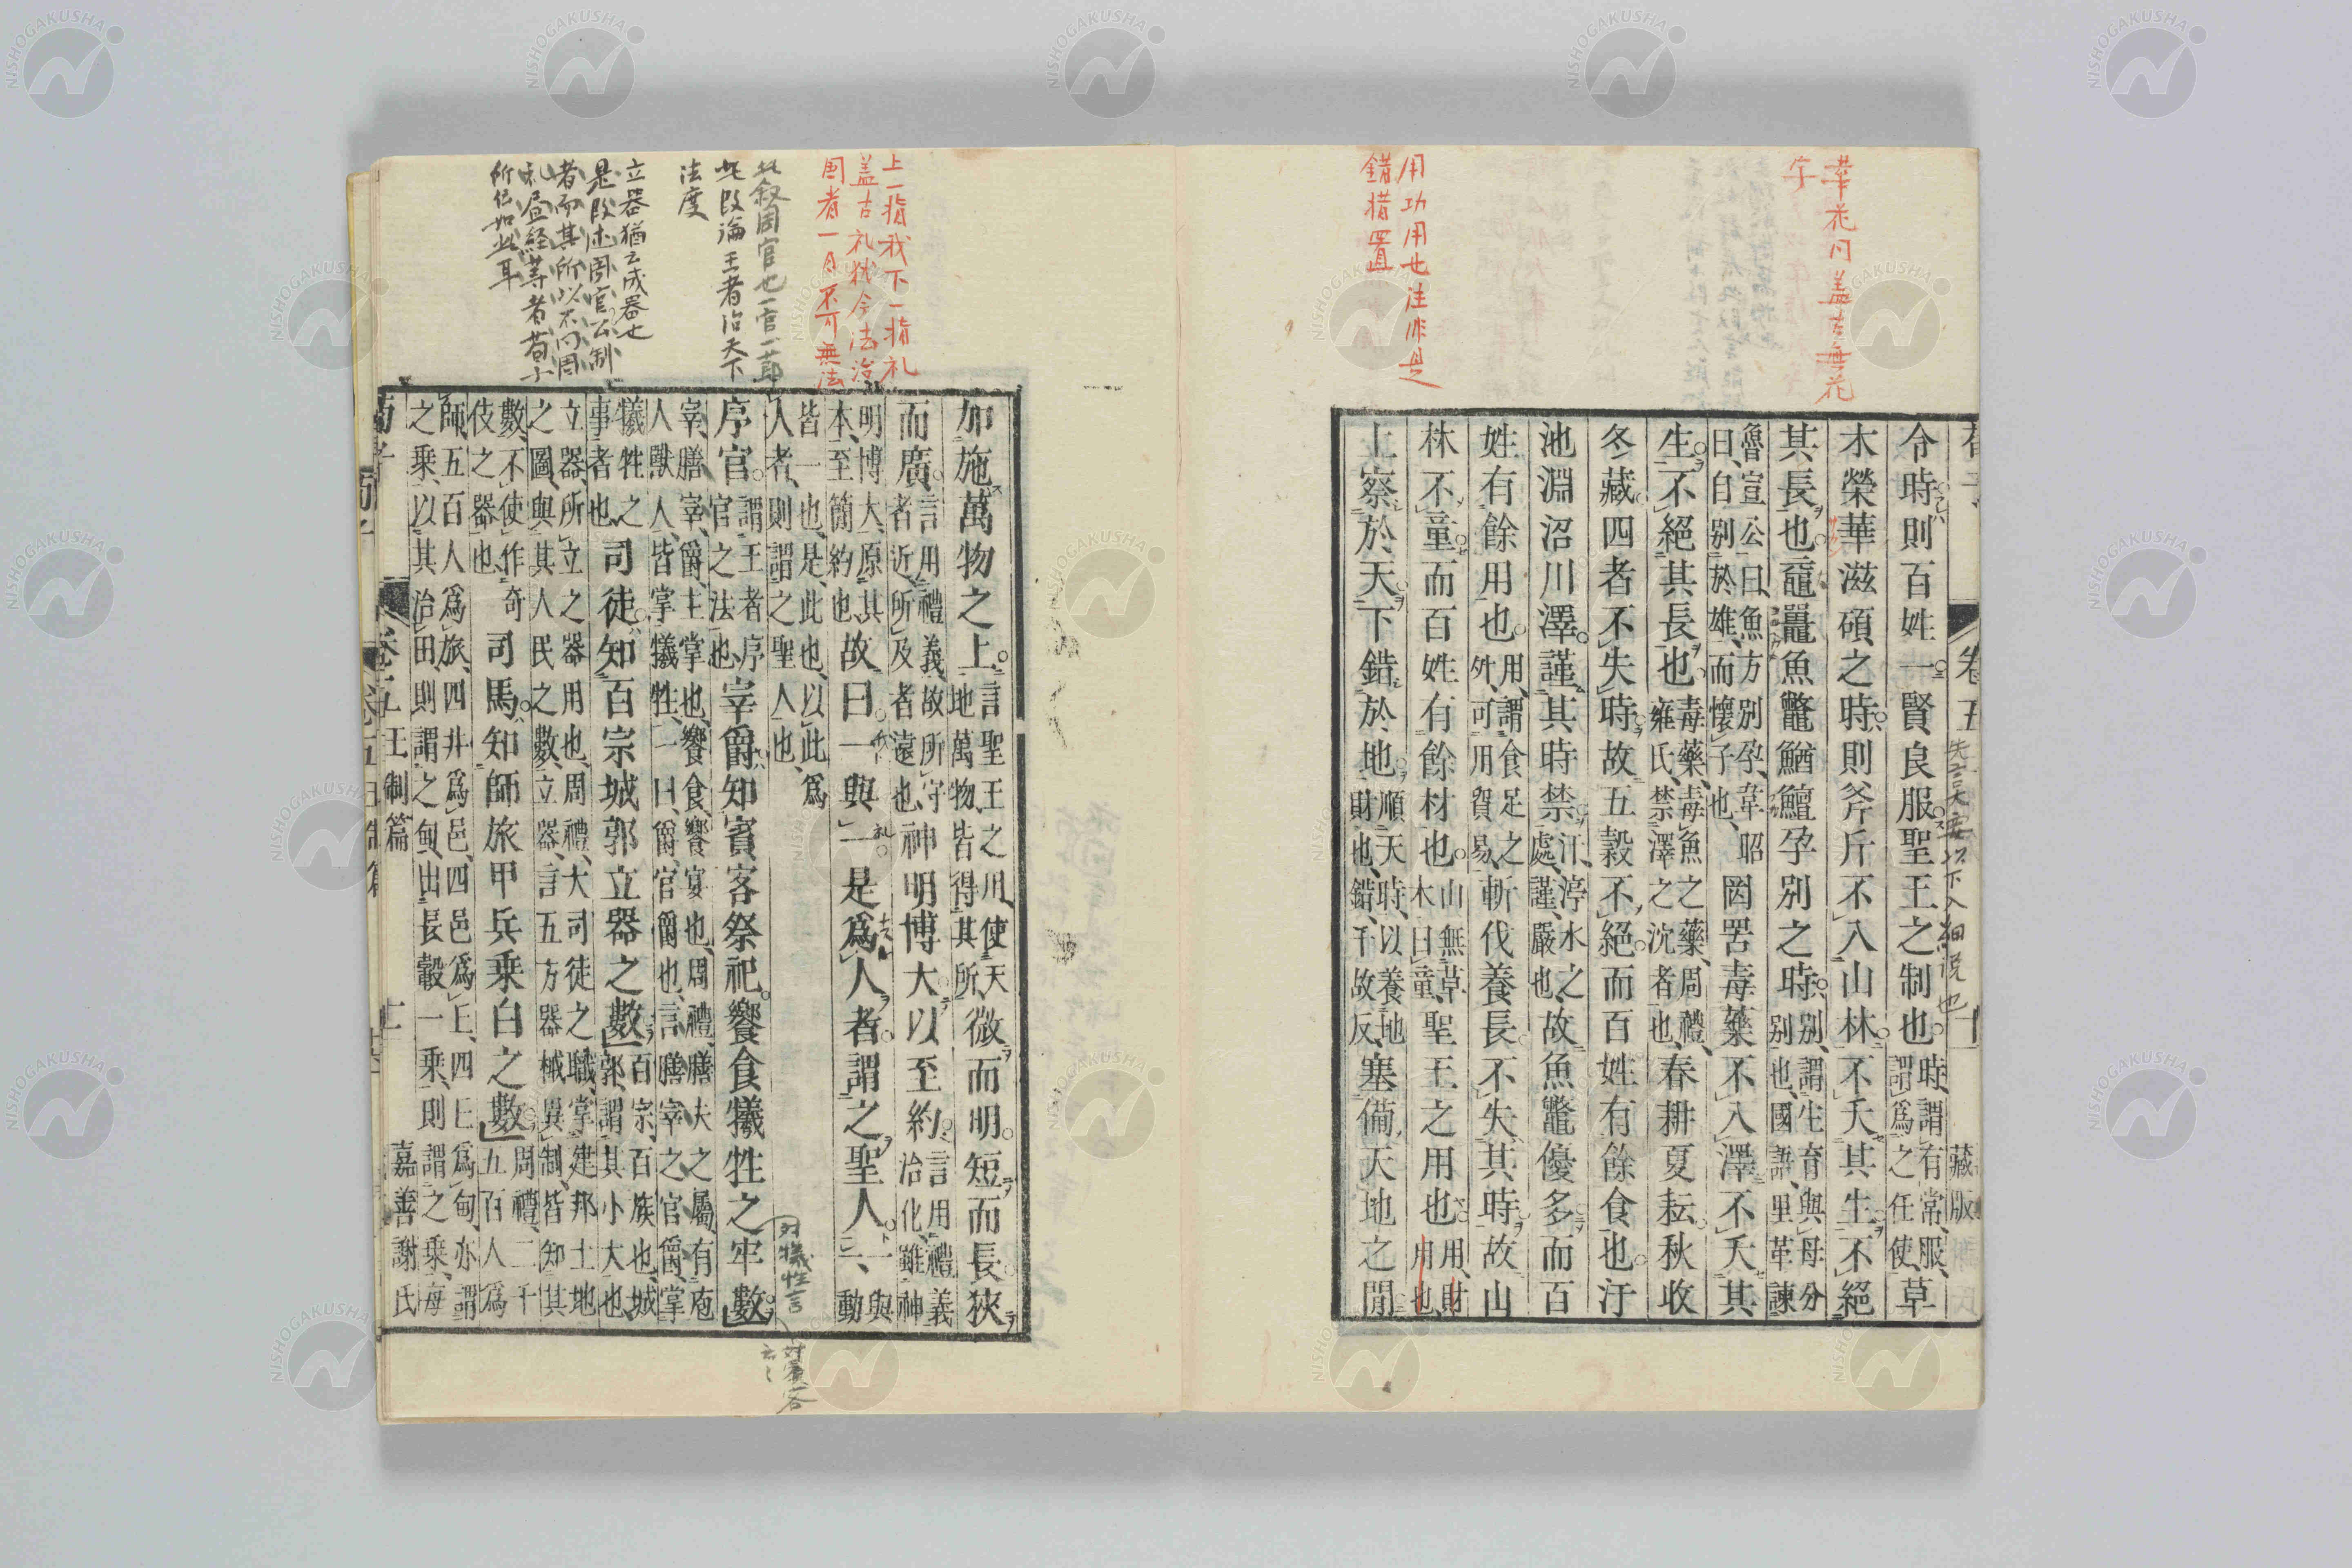 華花同蓋古無花
字
用功用也注非是
錯措置
卷五 藏版
先言大要以下入細説也
令時則百姓一賢良服聖王之制也時謂有常服謂爲之任使草
木榮華滋碩之時則斧斤不入山林不夭其生不絕
其長也黿鼉魚鼈鰌鱣孕別之時別謂生育與母分別也國語里革諫
魯宣公曰魚方別孕韋昭曰自別於雄而懷子也罔罟毒藥不入澤不夭其
生不絕其長也毒藥毒魚之藥周禮雍氏禁澤之沈者也春耕夏耘秋收
冬藏四者不失時故五穀不絕而百姓有餘食也汙
池淵沼川澤謹其時禁汙渟水之處謹嚴也故魚鼈優多而百
姓有餘用也用謂食足之外可用貿易斬伐養長不失其時故山
林不童而百姓有餘材也山無草木曰童聖王之用也用財用也
上察於天下錯於地順天時以養地財也錯千故反塞備天地之閒
上一指我下一指礼
蓋古礼犹今法治
国者一日不可無法
此叙周官也一官一節
此段論王者治天下
法度
立器猶云成器也
是段述周官公制
者而其所以不同周
礼經等者荀子
所伝如此耳
加施萬物之上言聖王之用使天地萬物皆得其所微而明短而長狹
而廣言用禮義故所守者近所及者遠也神明博大以至約言用禮義治化雖神
明博大原其本至簡約也故曰一與一是爲人者謂之聖人一與一動
皆一也是此也以此爲人者則謂之聖人也
序官謂王者序官之法也宰爵知賓客祭祀饗食犧牲之牢數
對犧牲言
對賓客云々
宰膳宰爵主掌也饗食饗宴也周禮膳夫之屬有庖人獸人皆掌犧牲一曰爵官爵也言膳宰之官爵掌
犧牲之事者也司徒知百宗城郭立器之數百宗百族也城郭謂其小大也
立器所立之器用也周禮大司徒之職掌建邦土地之圖與其人民之數立器言五方器械異制皆知其
數不使作奇伎之器也司馬知師旅甲兵乘白之數周禮二千五百人爲
師五百人爲旅四井爲邑四邑爲丘四丘爲甸亦謂之乘以其治田則謂之甸出長轂一乘則謂之乘每
卷五 王制篇 嘉善謝氏